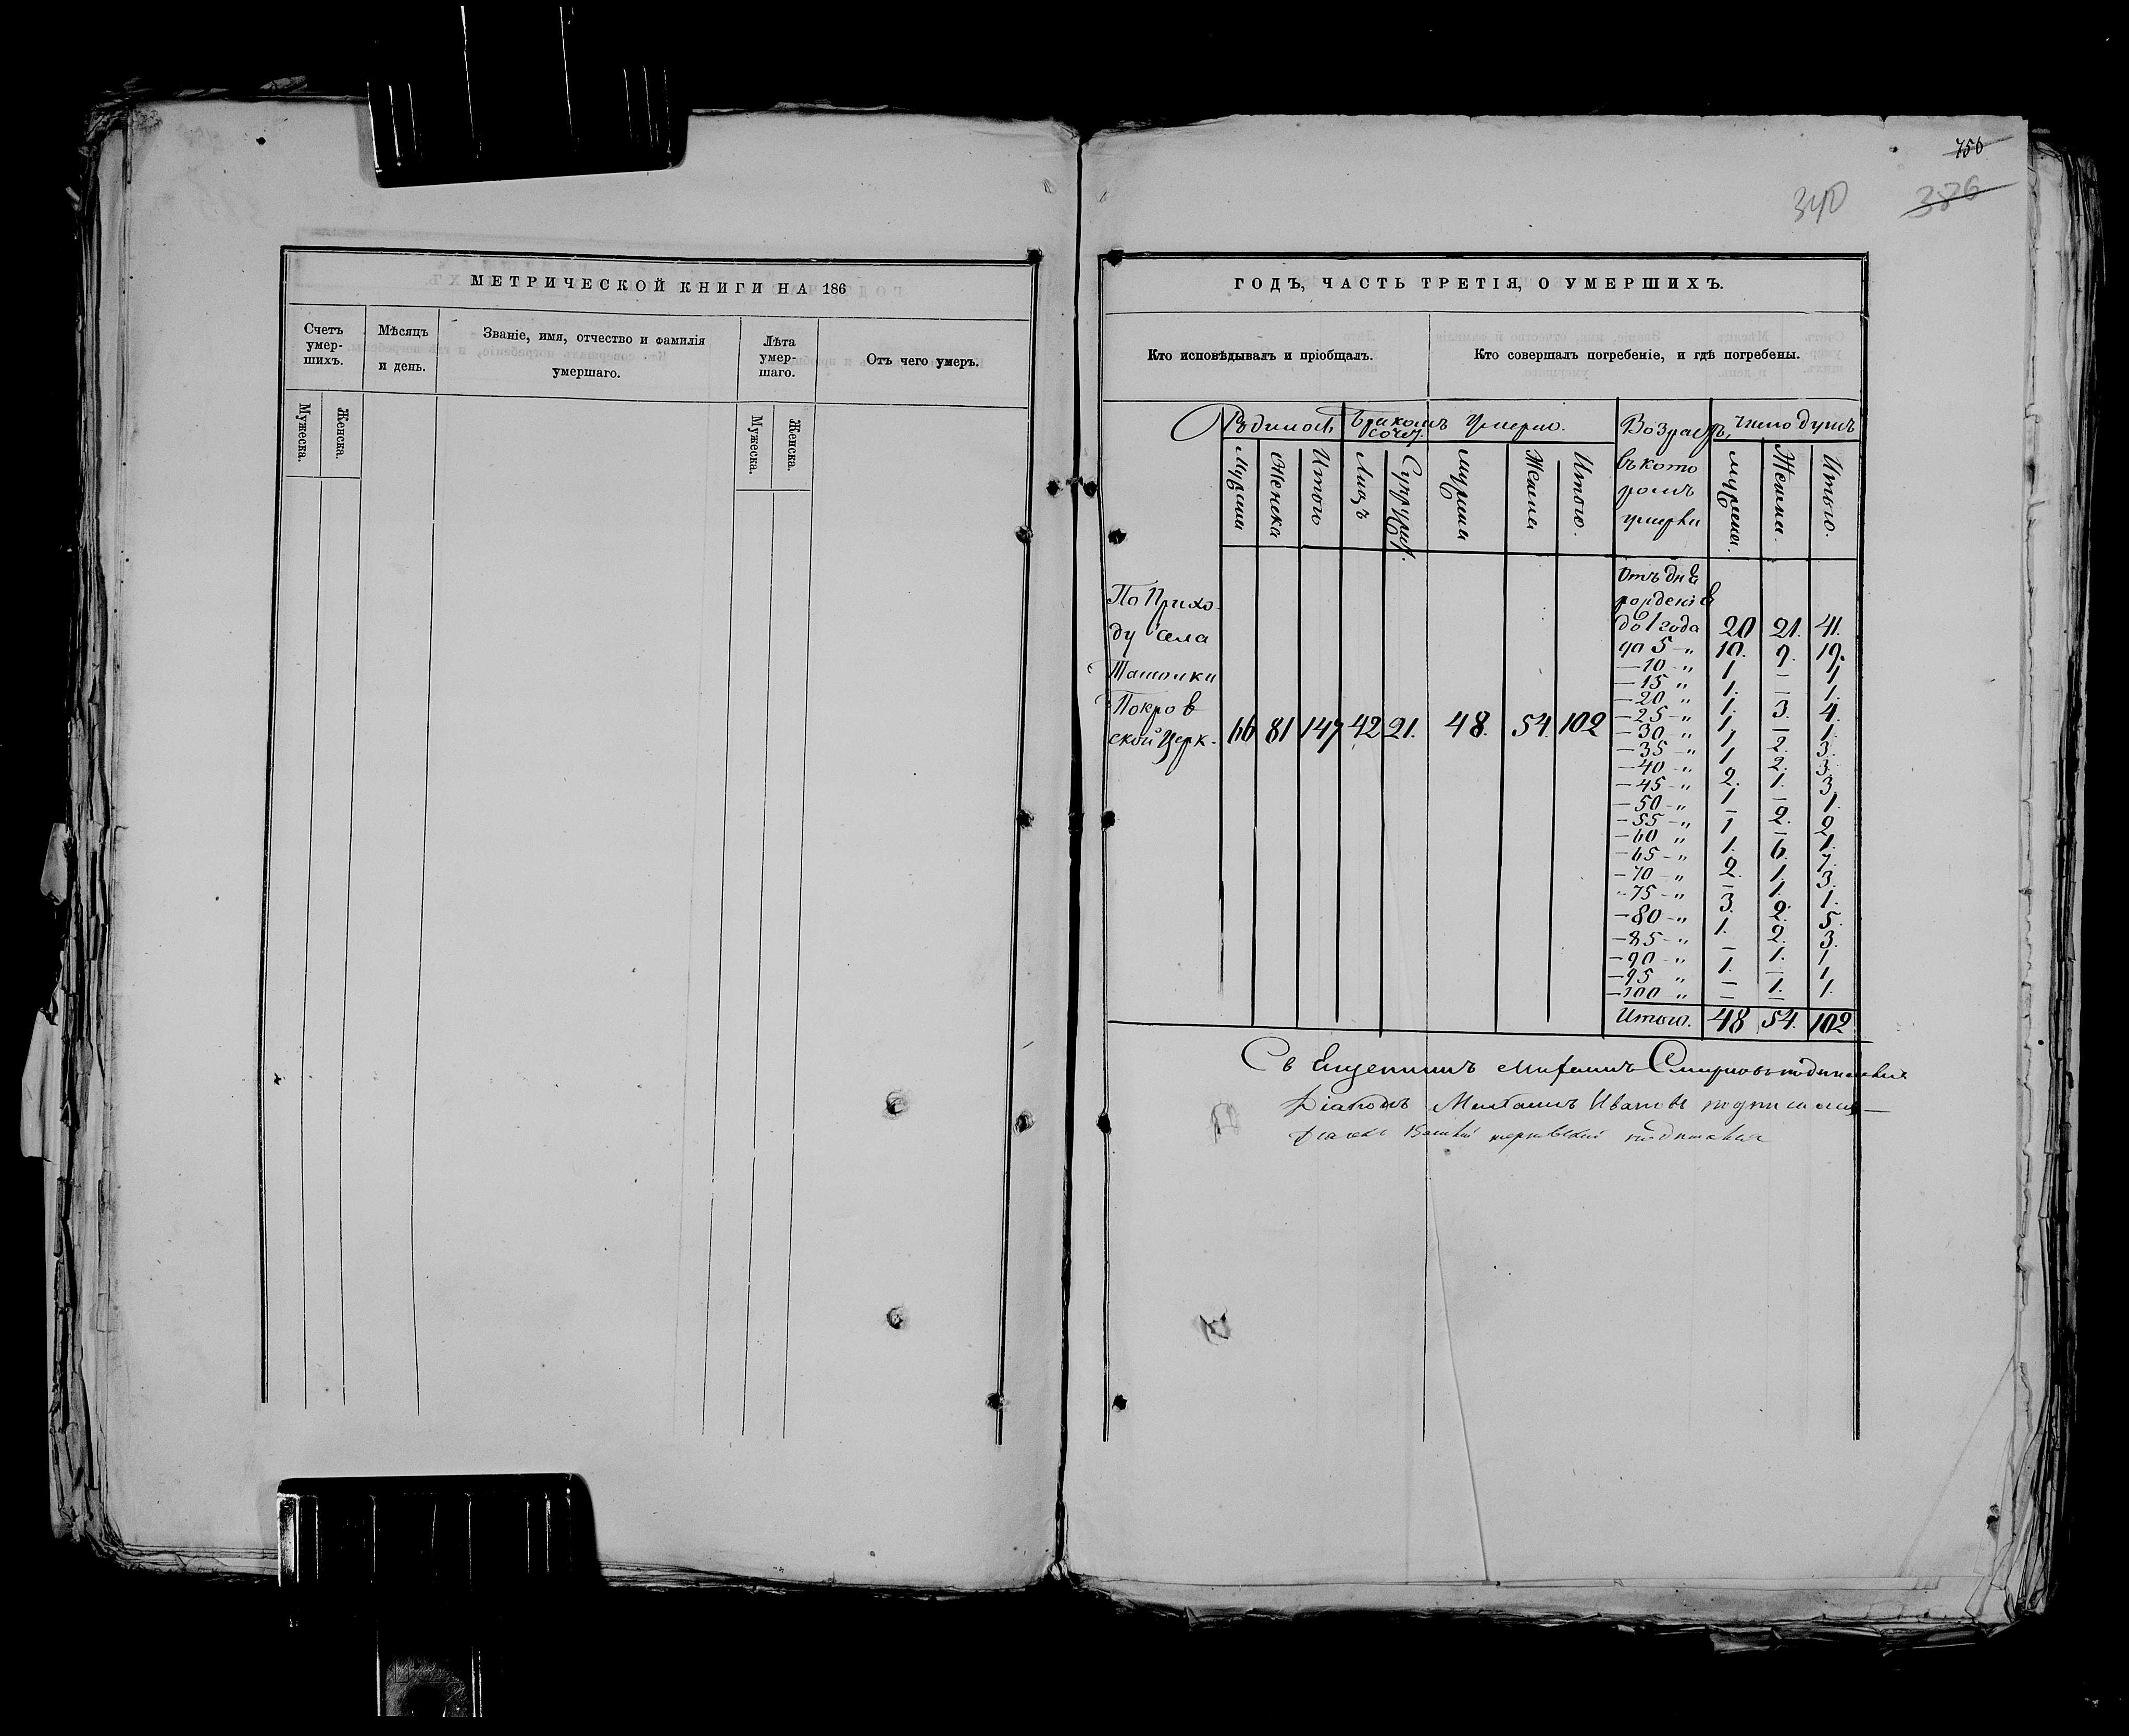 МЕТРИЧЕСКОЙ КНИГИ НА 186
Счетъ умер-шихъ.
Мѣсяцъ и день.
Званіе, имя, отчество и фамилія умершаго.
Лѣта умер-шаго.
Отъ чего умеръ.
Мужеска.
Женска.
Мужеска.
Женска.
750
340 386
ГОДЪ, ЧАСТЬ ТРЕТІЯ, О УМЕРШИХЪ.
Кто исповѣдывалъ и пріобщалъ.
Кто совершалъ погребеніе, и гдѣ погребены.
Бракомъ сочет.
Умерло.
Возрастъ, въ которомъ умерли
Число душъ
Мужеска
Женска
Итого
Лицъ
Супруж.
Мужеска
Женска
Итого.
Мужеска.
Женска.
Итого.
По Прихо-
ду села
Покров
ской Церк. 66 81 147 42 21. 48. 54. 102
Отъ дня
рожденія
до 1 года 20 21. 41.
до 5 - „ 10. 9. 19.
— 10 „ 1 — 1
— 15 „ 1. — 1.
— 20 „ 1. 3. 4.
— 25 - „ 1. — 1.
— 30 „ 1 2. 3.
— 35 - „ 1 2. 3.
— 40 „ 2. 1. 3
— 45 - „ 1 — 1.
— 50 - „ — 2. 2
— 55 - „ 1 — 1.
— 60 „ 1. 6. 7.
— 65 - „ 2. 1. 3.
— 70 - „ — 1. 1.
— 75 - „ 3. 2. 5.
— 80 - „ 1. 2. 3.
— 85 - „ — 1. 1
— 90 - „ 1. — 1.
— 95 „ — 1. 1.
— 100 „ — —
Итого. 48 54. 102
Св Смирновъ подписался
Діаконъ Ивановъ подписался
подписался